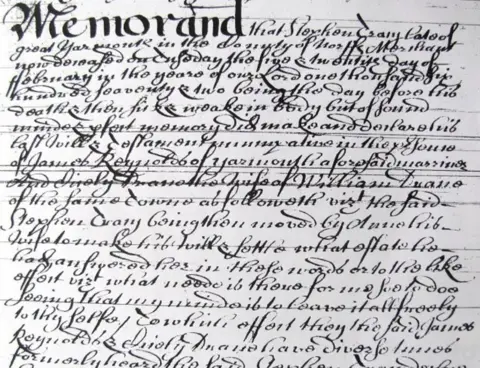 Memorand that Stephen Cram late of
great Yarmouth in the County of Norff Merchant
now deceased on Tuesday the five & twentie day of
ffebruary in the yeare of our Lord one thousand six
hundred seaventy & two being the day before his
death & then sicke weake in body but of sound
minde & pfect memory did make and declare his
last Will & Testament nuncupative in the house
of James Reynolds of Yarmouth aforesaid marriner
And the wife of William
of the same Towne as followeth vizt the said
Stephen Cram being then moved by Anne his
wife to make his will & settle what estate he
had answered her in these words or to the like
effect vizt what neede is there for me soe to doe
seeing that my minde is to leave it all freely
to thy selfe To which effect they the said James
Reynolds & have diverse times
formerly heard the said Stephen